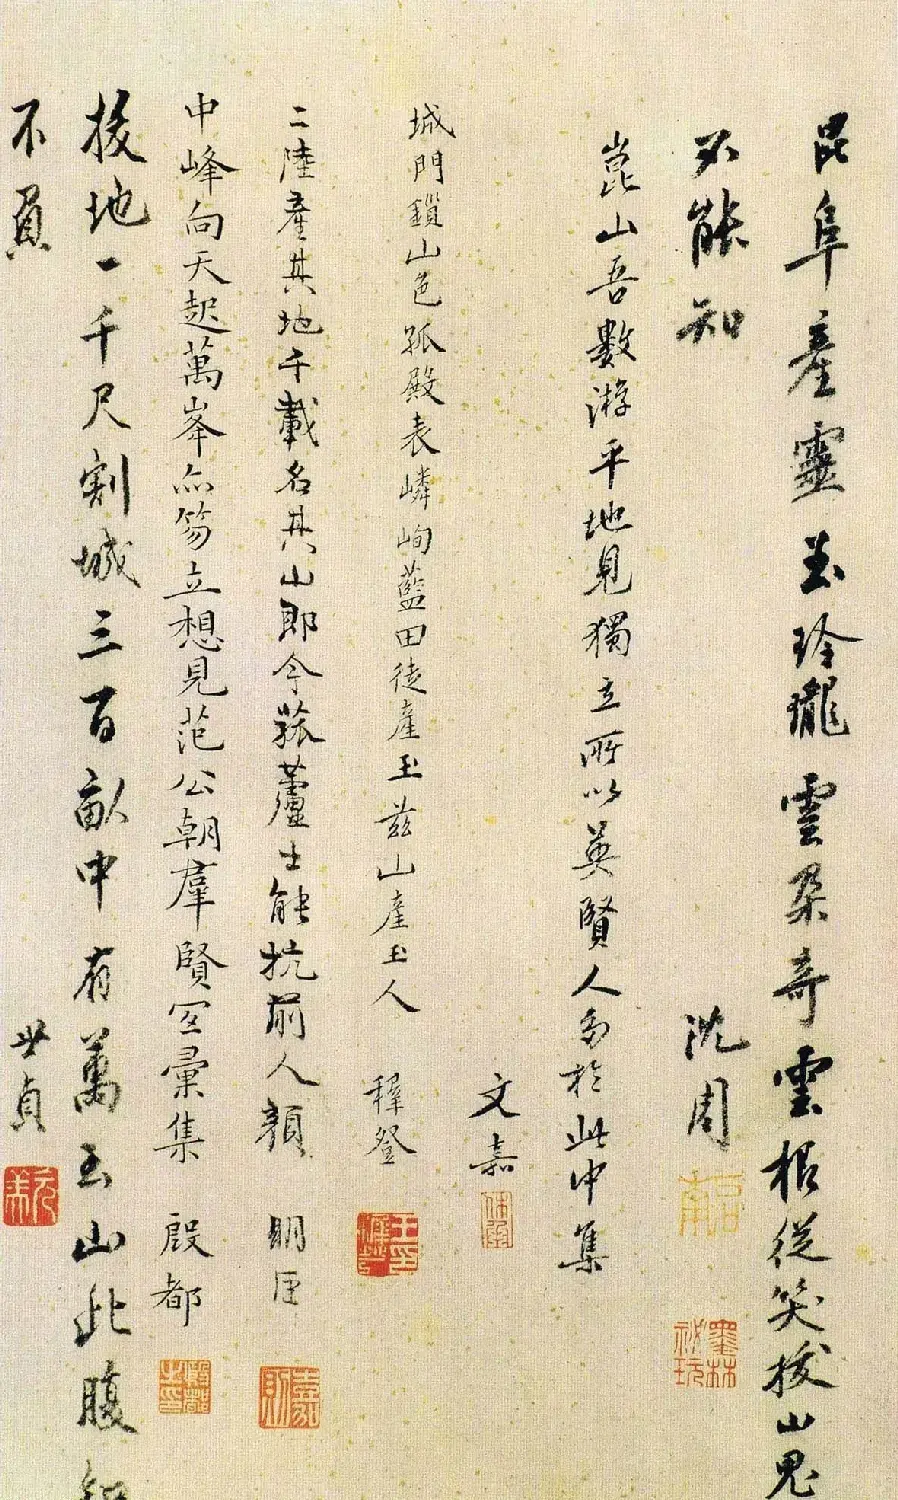 昆阜產靈玉玲瓏雲朶奇雲根從笑拔山鬼
不能知 沈周
啟南
墨林秘玩
崑山吾數游平地見獨立所以英賢人多於此中集
文嘉
休承
城門鎖山色孤殿表嶙峋藍田徒產玉茲山產玉人 穉登
王穉登印
二陸產其地千載名其山即今菰蘆士能抗前人顏 明臣
嘉則
中峰向天起萬峯亦笏立想見范公朝羣賢彙集 殷都
殷都之印
拔地一千尺割城三百畝中有萬玉山此腹
不負 世貞
元美